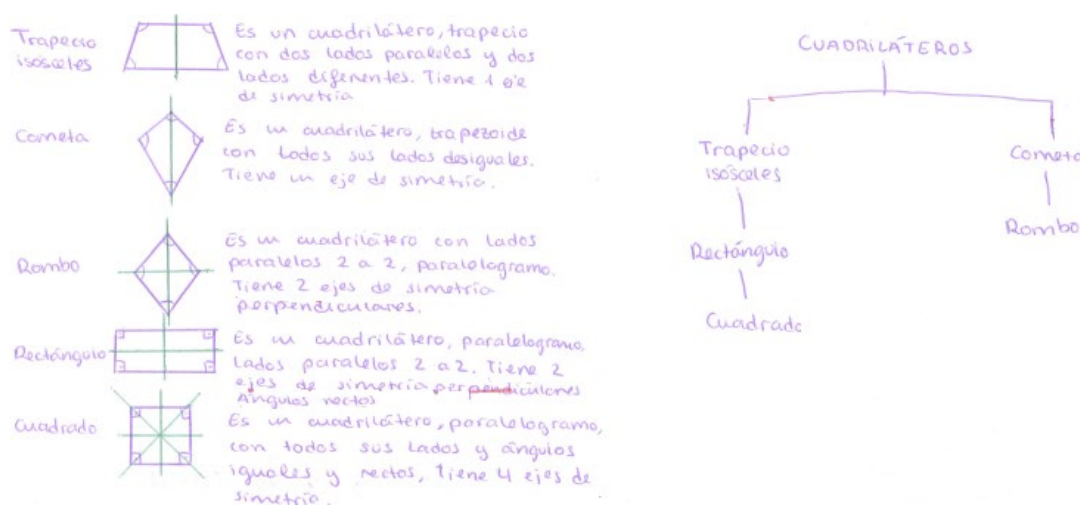 Trapecio
isósceles
Es un cuadrilátero, trapecio
con dos lados paralelos y dos
lados diferentes. Tiene 1 eje
de simetría
Cometa
Es un cuadrilátero, trapezoide
con todos sus lados desiguales.
Tiene un eje de simetría.
Rombo
Es un cuadrilátero con lados
paralelos 2 a 2, paralelogramo.
Tiene 2 ejes de simetría
perpendiculares.
Rectángulo
Es un cuadrilátero, paralelogramo,
lados paralelos 2 a 2. Tiene 2
ejes de simetría perpendiculares
Ángulos rectos
Cuadrado
Es un cuadrilátero, paralelogramo,
con todos sus lados y ángulos
iguales y rectos, Tiene 4 ejes de
simetría.
CUADRILÁTEROS
Trapecio
isósceles
Cometa
Rectángulo
Rombo
Cuadrado